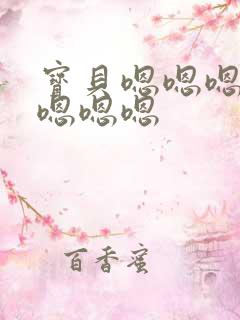 寶貝嗯嗯嗯
嗯嗯嗯
百香蜜